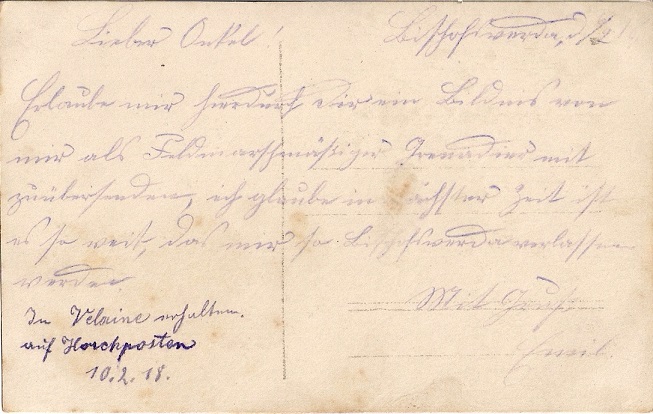 Lieber Onkel! Bischofswerda, d.
Erlaube mir hierdurch Dir ein Bildnis von
mir als Feldmarschmäßiger Grenadier mit
zuübersenden, ich glaube in nächster Zeit ist
es so weit, das mir so Bischofswerda verlassen
werden
Mit Gruß
Emil.
In Velaine erhalten.
auf Horchposten
10.2.18.